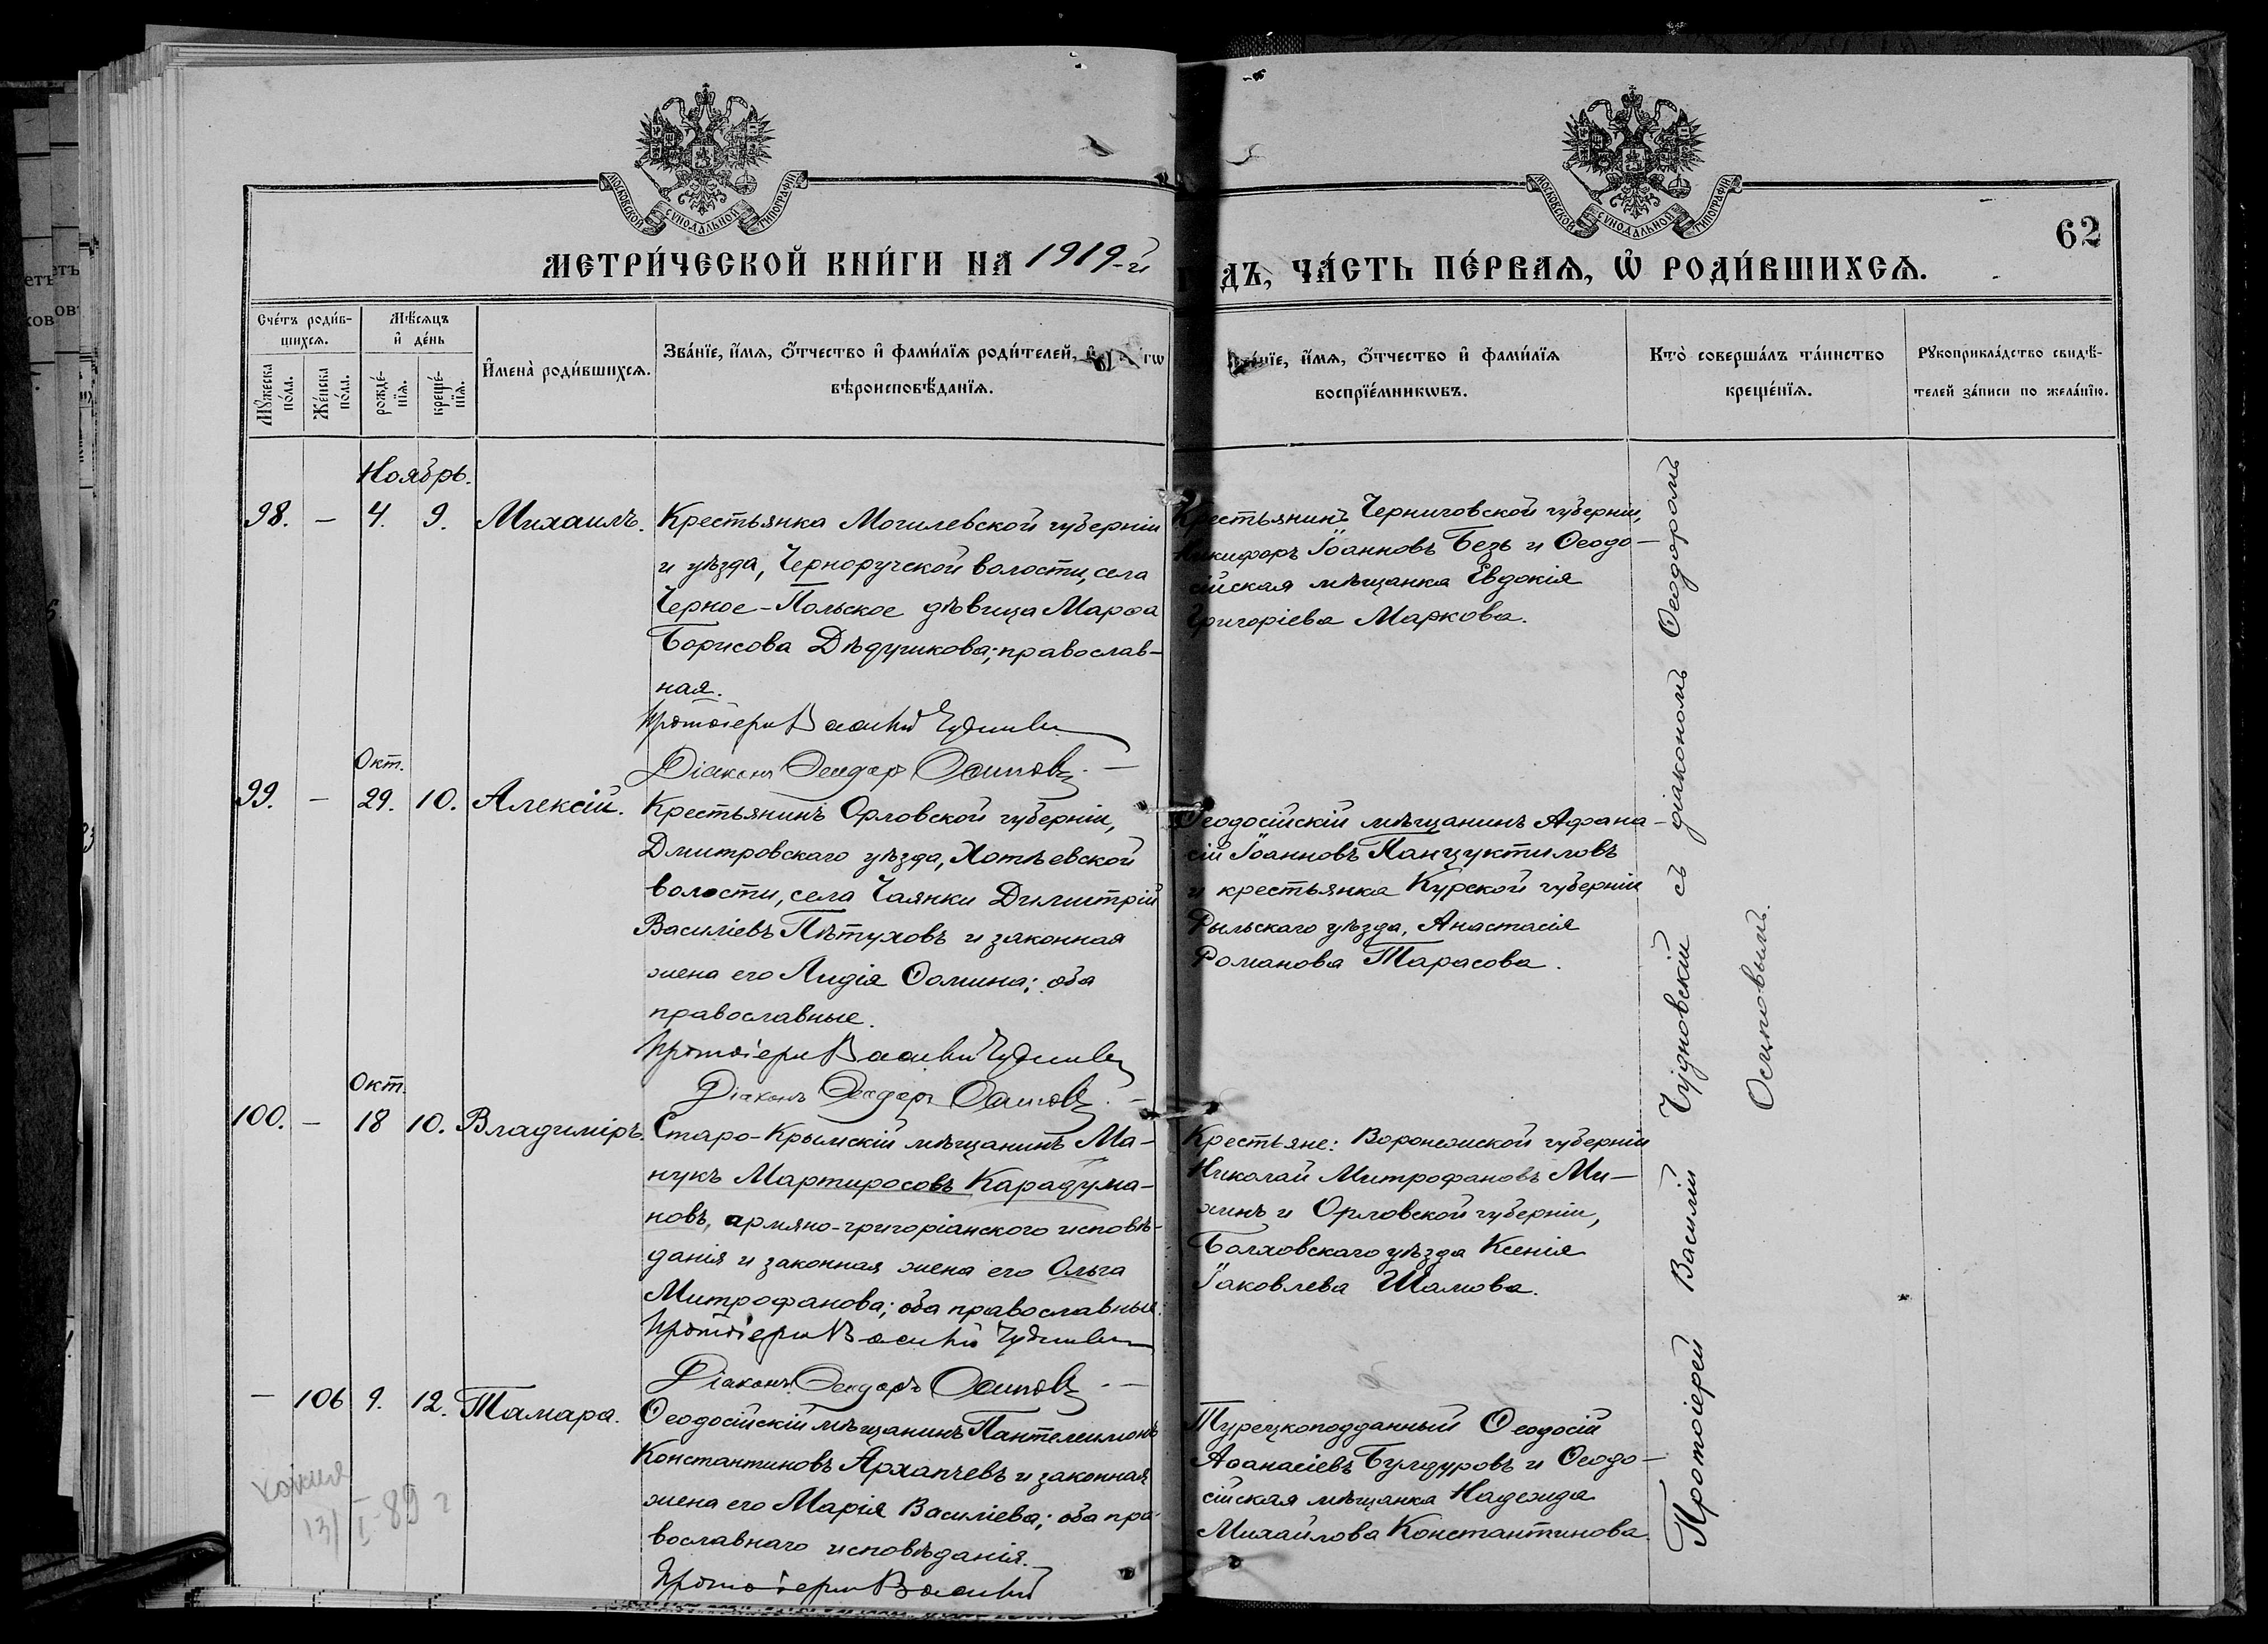 МОСКОВСКОЙ СУНОДАЛЬНОЙ ТИПОГРАФІИ
МОСКОВСКОЙ СУНОДАЛЬНОЙ ТИПОГРАФІИ
62
МЕТРИ́ЧЕСКОЙ КНИ́ГИ НА 1919-й
ДЪ, ЧА́СТЬ ПЕ́РВАѦ, Ѡ РОДИ́ВШИХСѦ.
Сче́тъ роди́в-
шихсѧ.
Мꙋ́жеска
по́ла.
Же́нска
по́ла.
Мѣ́сѧцъ
и҆ де́нь
рожде́-
нїѧ.
креще́-
нїѧ.
И҆мена̀ роди́вшихсѧ.
Зва́нїе, и҆́мѧ, ѻ҆́тчество и҆ фами́лїѧ роди́телей,
вѣроисповѣ́данїѧ.
и҆́мѧ, ѻ҆́тчество и҆ фами́лїѧ
воспрїе́мникѡвъ.
Кто̀ соверша́лъ та́инство
креще́нїѧ.
Рꙋкоприкла́дство свидѣ́-
телей за́писи по жела́нїю.
Ноябрь.
98. — 4. 9. Михаилъ.
Крестьянка Могилевской губерніи
и уѣзда, Черноручской волости, села
Черное-Польское дѣвица Марѳа
Борисова Дѣдушкова; православ-
ная.
Протоіерей Василій Чудновскій
Діаконъ Ѳеодоръ Осиповъ. —
Крестьянинъ Черниговской губерніи,
Никифоръ Іоанновъ Безъ и Ѳеодо-
сійская мѣщанка Евдокія
Григоріева Маркова.
Окт.
99. — 29. 10. Алексій.
Крестьянинъ Орловской губерніи,
Дмитровскаго уѣзда, Хотѣевской
волости, села Чаянки Димитрій
Василіевъ Пѣтуховъ и законная
жена его Лидія Ѳомина; оба
православные.
Протоіерей Василій Чудновскій
Діаконъ Ѳеодоръ Осиповъ. —
Ѳеодосійскій мѣщанинъ Афана-
сій Іоанновъ Панцуктиловъ
и крестьянка Курской губерніи
Рыльскаго уѣзда, Анастасія
Романова Тарасова.
Окт.
100. — 18 10. Владиміръ.
Старо-Крымскій мѣщанинъ Ма-
нукъ Мартиросовъ Карадума-
новъ, армяно-григоріанского исповѣ-
данія и законная жена его Ольга
Митрофанова; оба православные.
Протоіерей Василій Чудновскій
Діаконъ Ѳеодоръ Осиповъ. —
Крестьяне: Воронежской губерніи
Николай Митрофановъ Ми-
хинъ и Орловской губерніи,
Болховскаго уѣзда Ксенія
Іаковлева Шамова.
— 106 9. 12. Тамара.
Ѳеодосійскій мѣщанинъ Пантелеимонъ
Константиновъ Архапчевъ и законная
жена его Марія Василіева; оба пра-
вославнаго исповѣданія.
Протоіерей Василій
Турецкоподданный Ѳеодосій
Аѳанасіевъ Булдуровъ и Ѳеодо-
сійская мѣщанка Надежда
Михайлова Константинова
Протоіерей Василій Чудновскій съ діакономъ Ѳеодоромъ
Осиповымъ.
копия
13/I-89 г